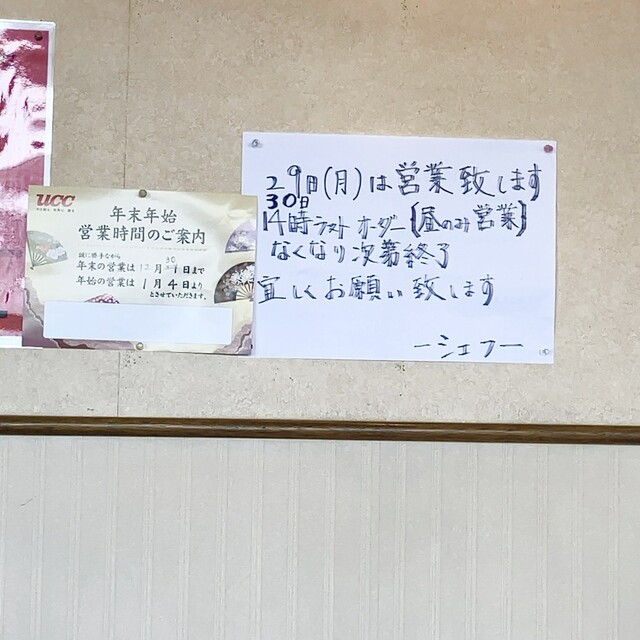 ucc
年末年始
営業時間のご案内
誠に勝手ながら
30
年末の営業は12月 1日まで
年始の営業は 1月4日より
とさせていただきます。
29日(月)は営業致します
30日
14時ラストオーダー[昼のみ営業]
なくなり次第終了
宜しくお願い致します
ーシェフー